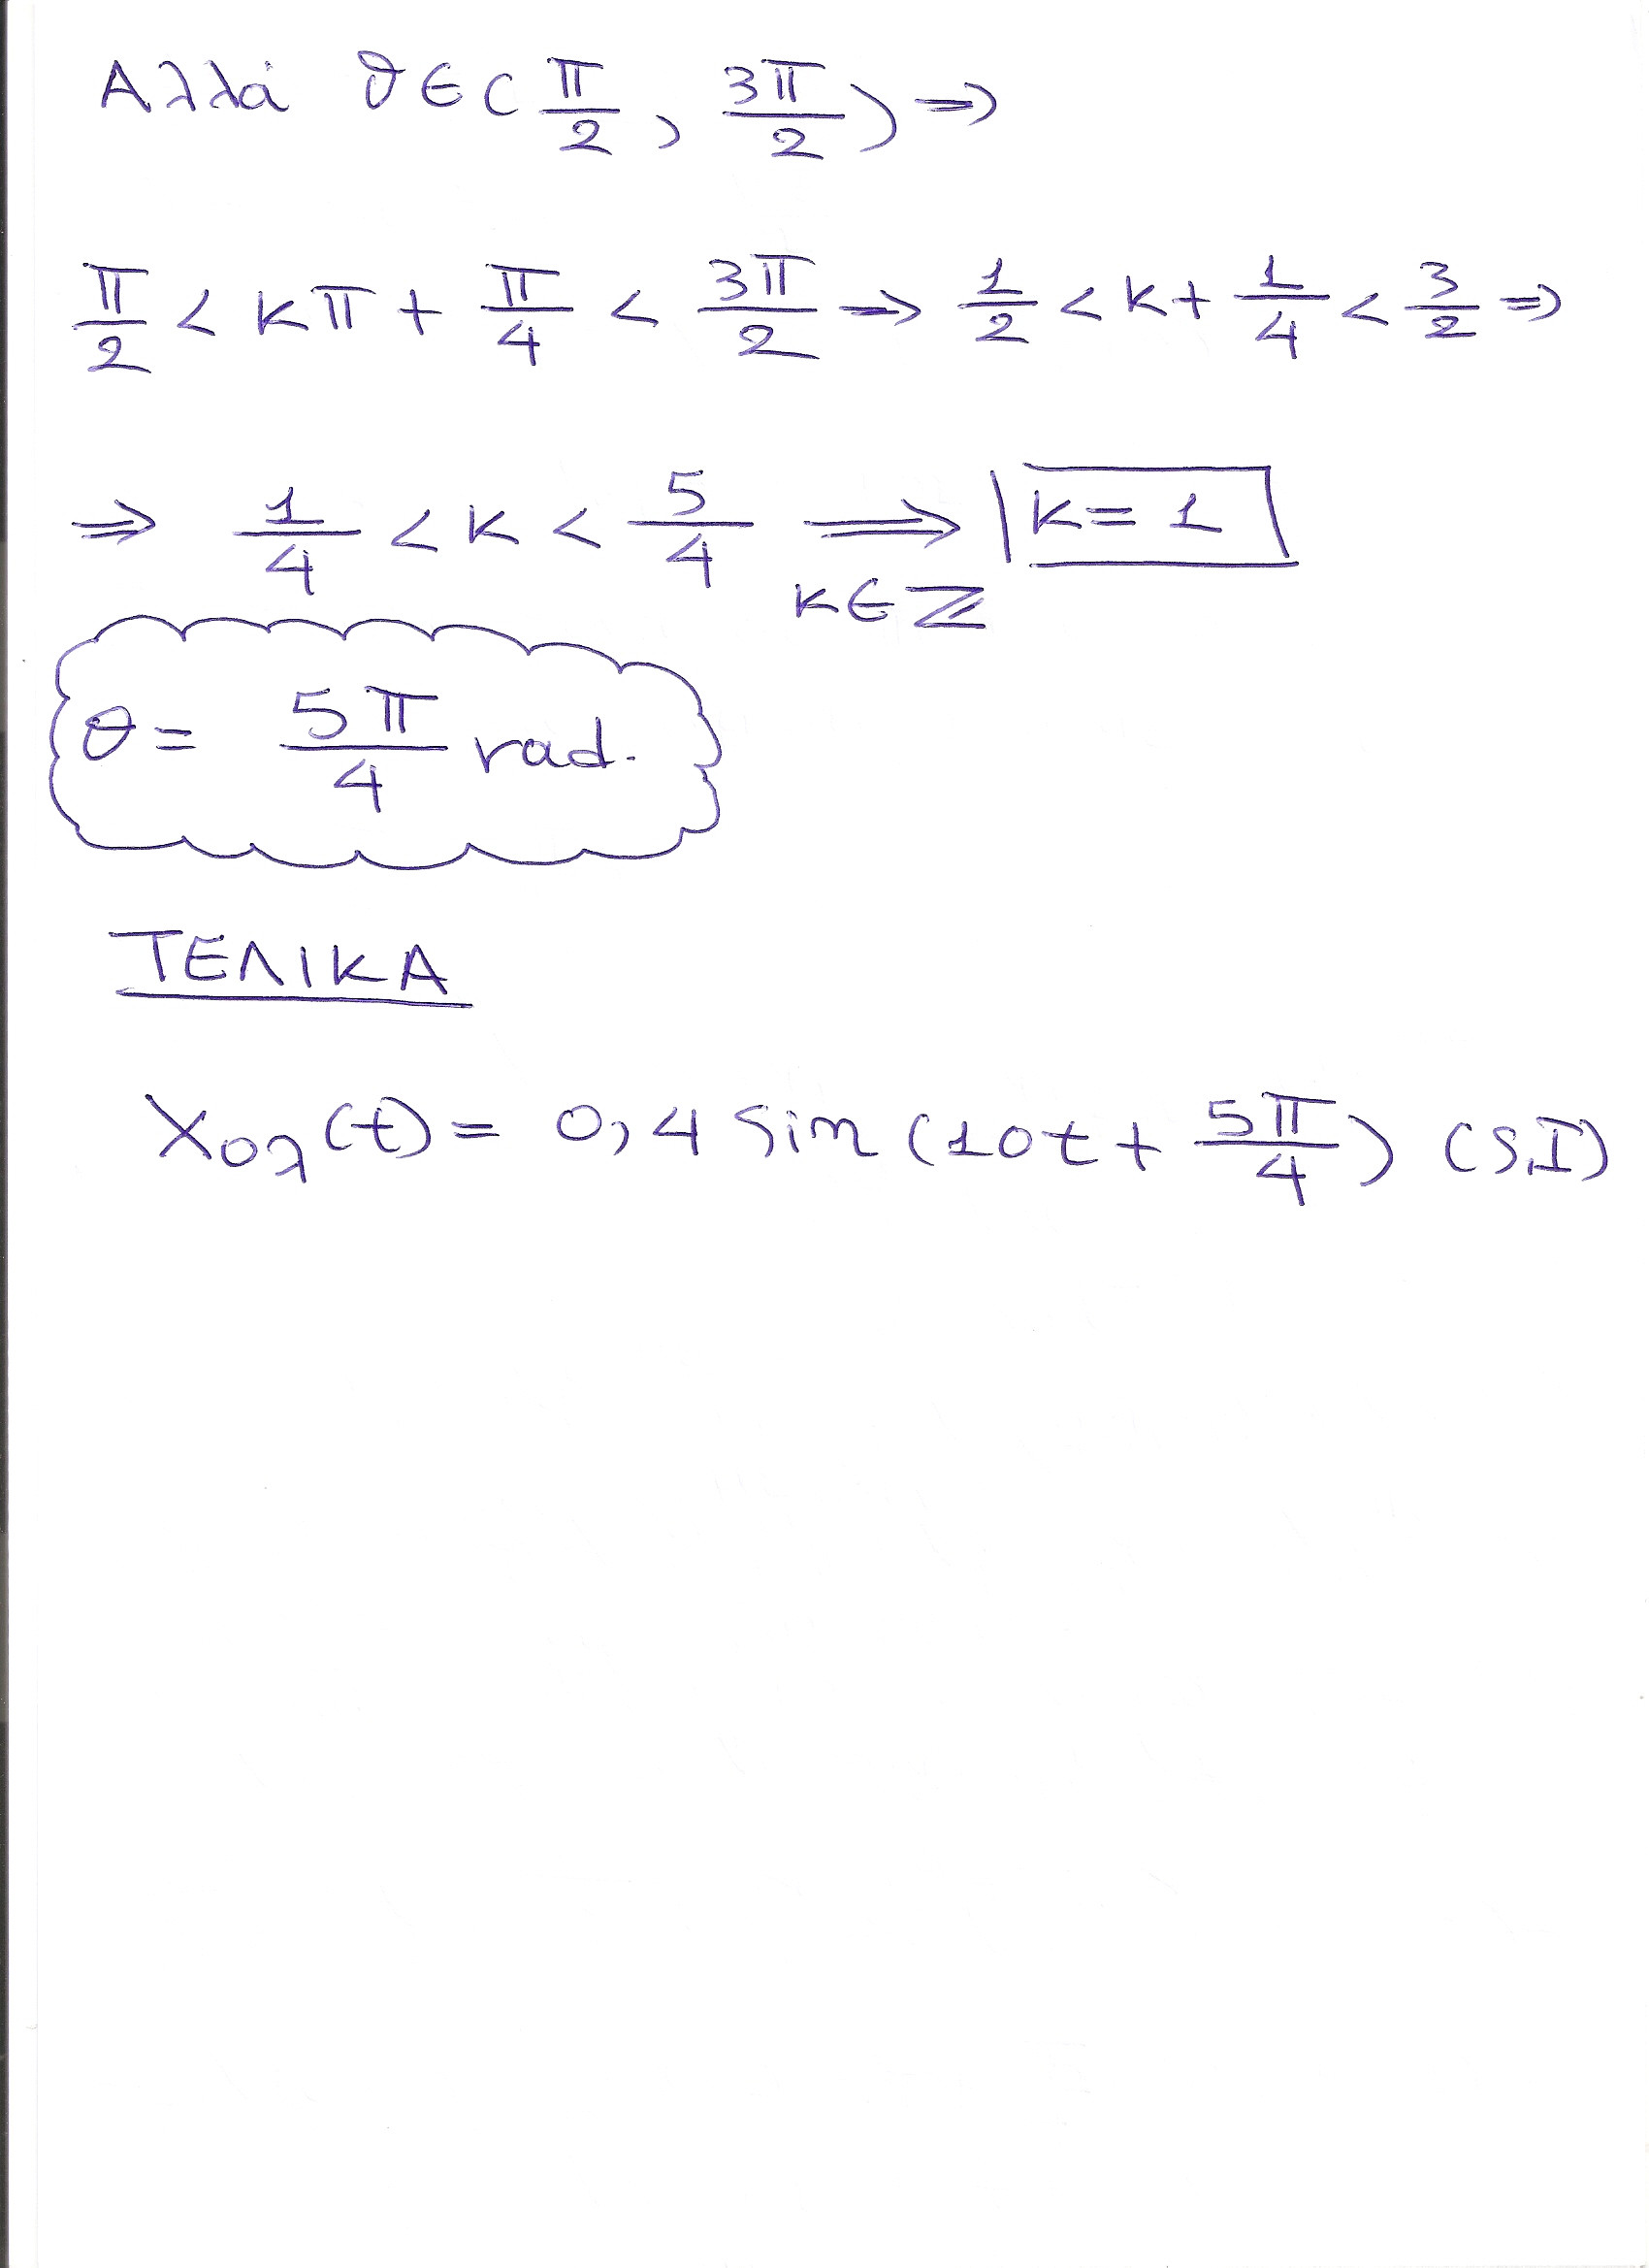 Αλλά θ ∈ (π/2, 3π/2) ⇒
π/2 < κπ + π/4 < 3π/2 ⇒ 1/2 < κ + 1/4 < 3/2 ⇒
⇒ 1/4 < κ < 5/4 ⇒ κ∈Z κ = 1
θ = 5π/4 rad.
ΤΕΛΙΚΑ
Xολ(t) = 0,4 sin (10t + 5π/4) (S.I)